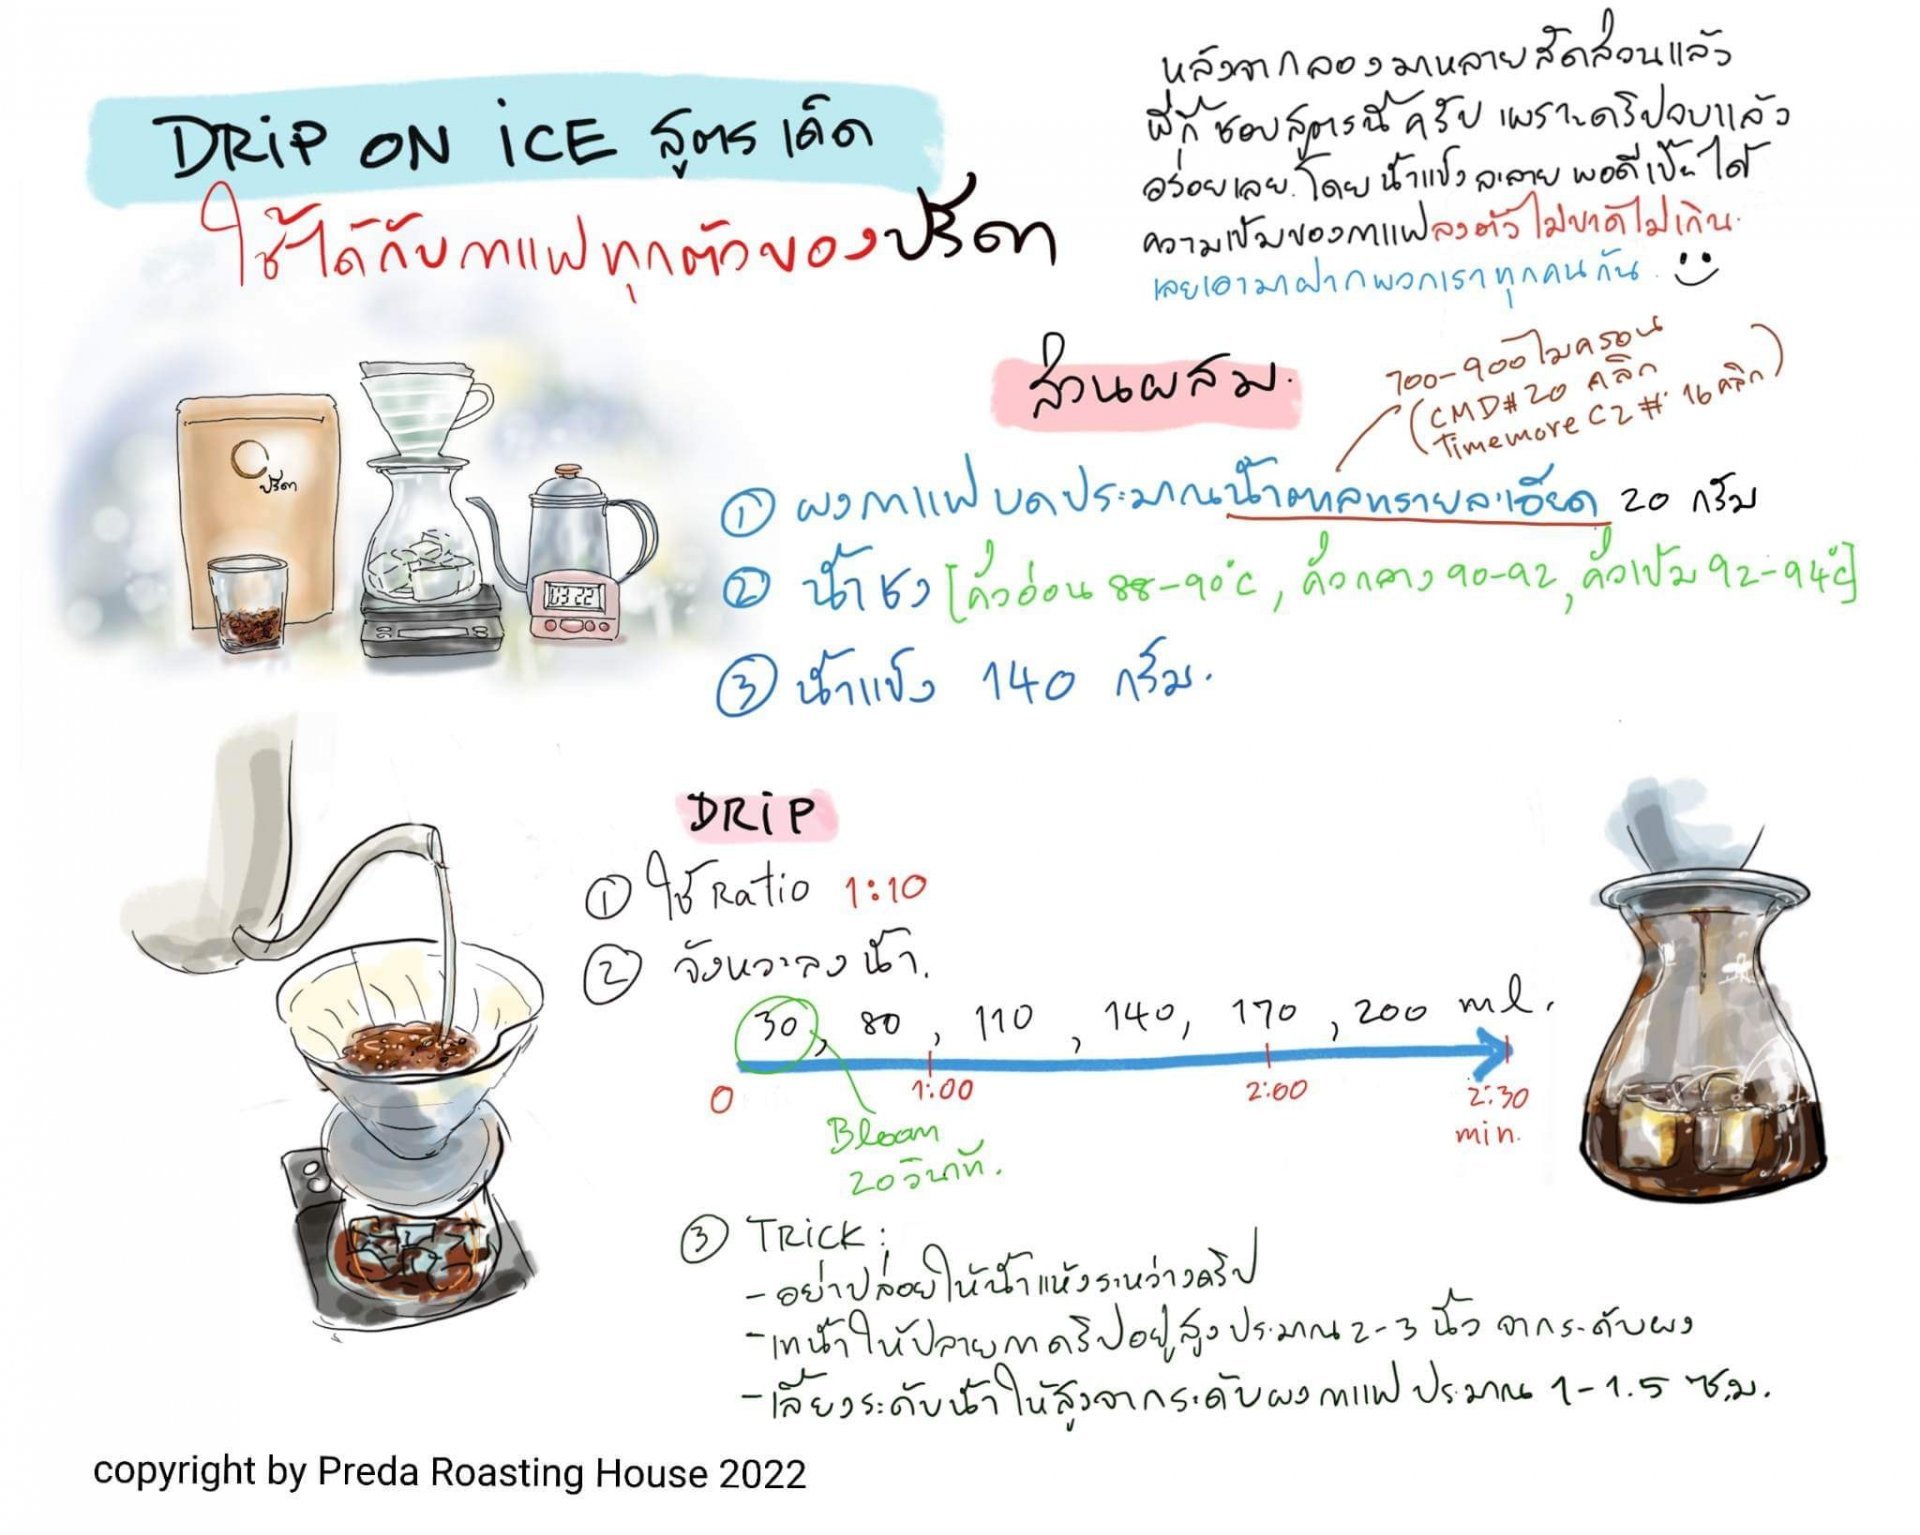 DRIP ON ICE สูตรเด็ด
ใช้ได้กับกาแฟทุกตัวของปรีดา
หลังจากลองมาหลายสัดส่วนแล้ว
พี่กี้ชอบสูตรนี้ครับ เพราะดริปจบแล้ว
อร่อยเลย. โดยน้ำแข็งละลายพอดีเป๊ะ ได้
ความเข้มของกาแฟลงตัวไม่ขาดไม่เกิน.
เลยเอามาฝากพวกเราทุกคนกัน.
ส่วนผสม.
700-900 ไมครอน
(CMD#20 คลิก
Timemore C2 # 16 คลิก)
① ผงกาแฟบดประมาณน้ำตาลทรายละเอียด 20 กรัม
② น้ำชง [คั่วอ่อน 88-90°c, คั่วกลาง 90-92, คั่วเข้ม 92-94°c]
③ น้ำแข็ง 140 กรัม.
ปรีดา
03:22
DRIP
① ใช้ Ratio 1:10
② จังหวะลงน้ำ.
30, 80, 110, 140, 170, 200 ml.
0 1:00 2:00 2:30
min.
Bloom
20 วินาที.
③ TRICK:
- อย่าปล่อยให้น้ำแห้งระหว่างดริป
- เทน้ำให้ปลายกาดริปอยู่สูงประมาณ 2-3 นิ้ว จากระดับผง
- เลี้ยงระดับน้ำให้สูงจากระดับผงกาแฟประมาณ 1-1.5 ซ.ม.
copyright by Preda Roasting House 2022